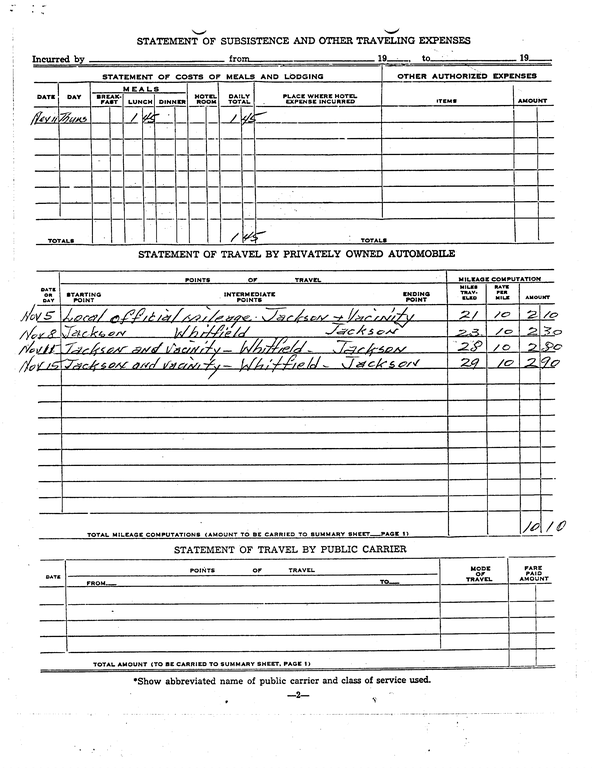 STATEMENT OF SUBSISTENCE AND OTHER TRAVELING EXPENSES
Incurred by from 19 to 19
STATEMENT OF COSTS OF MEALS AND LODGING OTHER AUTHORIZED EXPENSES
MEALS
DATE DAY BREAK-FAST LUNCH DINNER HOTEL ROOM DAILY TOTAL PLACE WHERE HOTEL EXPENSE INCURRED ITEMS AMOUNT
Nov 11 Thurs 1 45 1 45
TOTALS 1 45 TOTALS
STATEMENT OF TRAVEL BY PRIVATELY OWNED AUTOMOBILE
POINTS OF TRAVEL MILEAGE COMPUTATION
DATE OR DAY STARTING POINT INTERMEDIATE POINTS ENDING POINT MILES TRAV-ELED RATE PER MILE AMOUNT
Nov 5 Local official mileage. Jackson + Vacinity 21 10 2 10
Nov 8 Jackson Whitfield Jackson 23 10 2 30
Nov 11 Jackson and Vacinity - Whitfield - Jackson 28 10 2 80
Nov 15 Jackson and vacinity - Whitfield - Jackson 29 10 2 90
TOTAL MILEAGE COMPUTATIONS (AMOUNT TO BE CARRIED TO SUMMARY SHEET—PAGE 1) 10 10
STATEMENT OF TRAVEL BY PUBLIC CARRIER
DATE POINTS OF TRAVEL MODE OF TRAVEL FARE PAID AMOUNT
FROM TO
TOTAL AMOUNT (TO BE CARRIED TO SUMMARY SHEET, PAGE 1)
*Show abbreviated name of public carrier and class of service used.
—2—